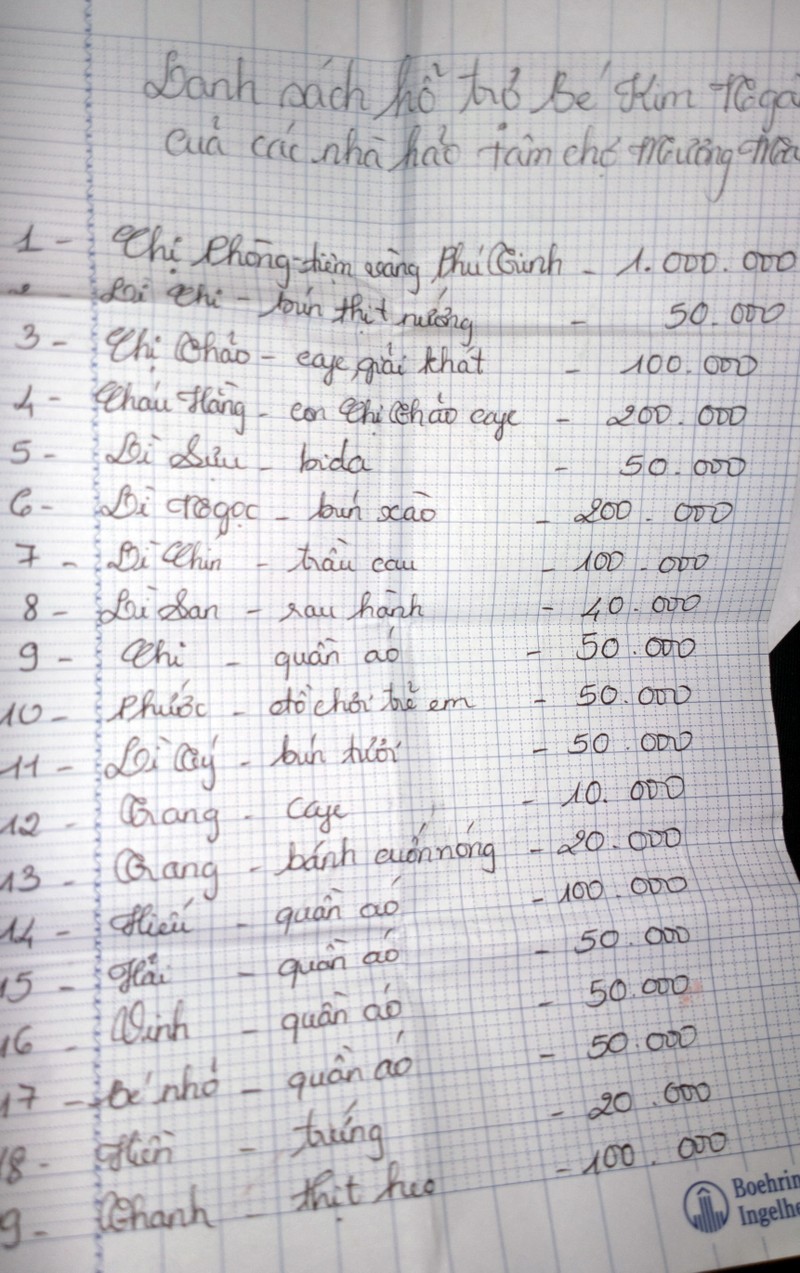 Danh sách hổ trở bé Kim Nga
của các nhà hảo tâm chợ Mương Mán
1 - Chị Phồng - tiệm vàng Phú Vinh - 1.000.000
2 - Dì Chi - bún thịt nướng - 50.000
3 - Chị Thảo - cafe giải khát - 100.000
4 - Cháu Hằng - con Chị Thảo cafe - 200.000
5 - Dì Sửu - bida - 50.000
6 - Dì Ngọc - bún xào - 200.000
7 - Dì Chín - trầu cau - 100.000
8 - Dì San - rau hành - 40.000
9 - Chi - quần áo - 50.000
10 - Phước - đồ chơi trẻ em - 50.000
11 - Dì Tý - bún tươi - 50.000
12 - Trang - cafe - 10.000
13 - Trang - bánh cuốn nóng - 20.000
14 - Hiếu - quần áo - 100.000
15 - Hải - quần áo - 50.000
16 - Vinh - quần áo - 50.000
17 - bé nhỏ - quần áo - 50.000
18 - Hiền - trứng - 20.000
9 - Thanh - thịt heo - 100.000
Boehrin
Ingelhe